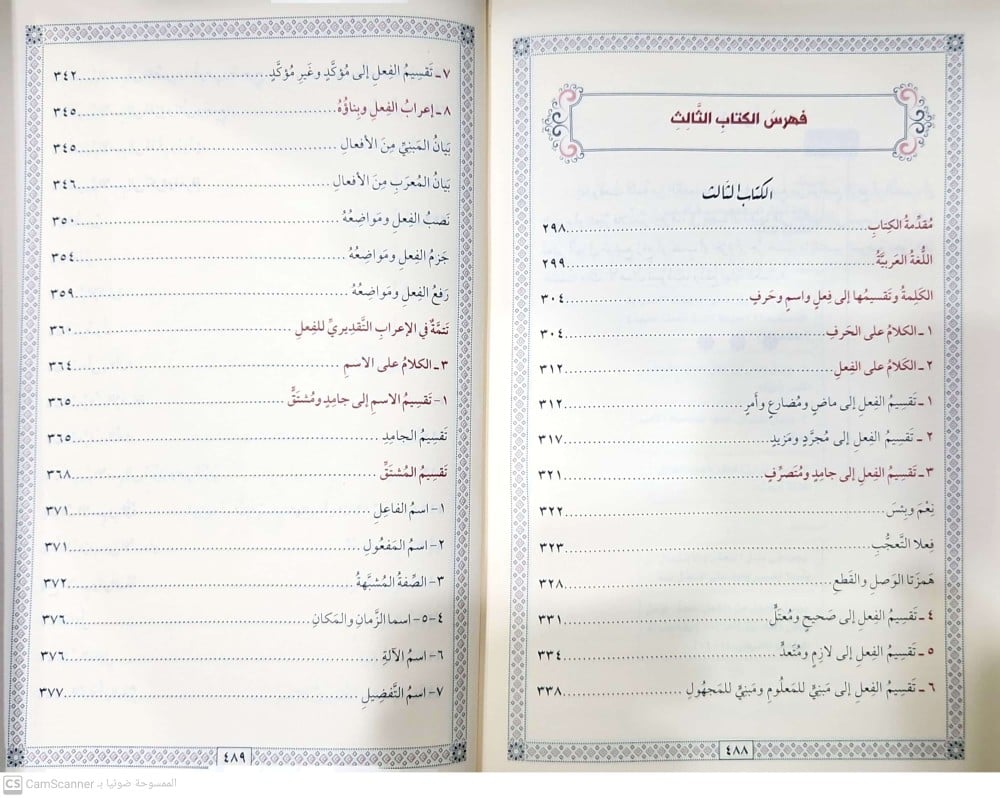 فهرسُ الكتابِ الثَّالِثِ
الكتاب الثالث
مُقدِّمةُ الكِتابِ ٢٩٨
اللُّغةُ العَربيَّةُ ٢٩٩
الكَلِمةُ وتَقسيمُها إلى فِعلٍ واسمٍ وحَرفٍ ٣٠٤
١ ـ الكلامُ على الحَرفِ ٣٠٤
٢ ـ الكَلامُ على الفِعلِ ٣١٢
١ ـ تَقسِيمُ الفِعلِ إلى ماضٍ ومُضارعٍ وأمرٍ ٣١٢
٢ ـ تَقسِيمُ الفِعلِ إلى مُجرَّدٍ ومَزيدٍ ٣١٧
٣ ـ تَقسِيمُ الفِعلِ إلى جامِدٍ ومُتَصرِّفٍ ٣٢١
نِعْمَ وبِئسَ ٣٢٢
فِعلا التَّعجُّبِ ٣٢٣
هَمزَتا الوَصلِ والقَطعِ ٣٢٨
٤ ـ تَقسِيمُ الفِعلِ إلى صَحيحٍ ومُعتَلٍّ ٣٣١
٥ ـ تَقسِيمُ الفِعلِ إلى لازِمٍ ومُتَعدٍّ ٣٣٤
٦ ـ تَقسِيمُ الفِعلِ إلى مَبنيٍّ للمَعلُومِ ومَبنيٍّ للمَجهُولِ ٣٣٨
٤٨٨
٧ ـ تَقسِيمُ الفِعلِ إلى مُؤكَّدٍ وغَيرِ مُؤكَّدٍ ٣٤٢
٨ ـ إعرابُ الفِعلِ وبِناؤُهُ ٣٤٥
بَيانُ المَبنيِّ مِنَ الأفعالِ ٣٤٥
بَيانُ المُعرَبِ مِنَ الأفعالِ ٣٤٦
نَصبُ الفِعلِ ومَواضِعُهُ ٣٥٠
جَزمُ الفِعلِ ومَواضِعُهُ ٣٥٤
رَفعُ الفِعلِ ومَواضِعُهُ ٣٥٩
تَتمَّةٌ في الإعرابِ التَّقديريِّ للفِعلِ ٣٦٠
٣ ـ الكلامُ على الاسمِ ٣٦٤
١- تَقسِيمُ الاسمِ إلى جامِدٍ ومُشتَقٍّ ٣٦٥
تَقسِيمُ الجامِدِ ٣٦٥
تَقسِيمُ المُشتَقِّ ٣٦٨
١- اسمُ الفاعِلِ ٣٧١
٢- اسمُ المَفعُولِ ٣٧١
٣- الصِّفةُ المُشبَّهةُ ٣٧٢
٤-٥- اسما الزَّمانِ والمَكانِ ٣٧٦
٦- اسمُ الآلةِ ٣٧٦
٧- اسمُ التَّفضِيلِ ٣٧٧
٤٨٩
CS CamScanner الممسوحة ضوئيا بـ